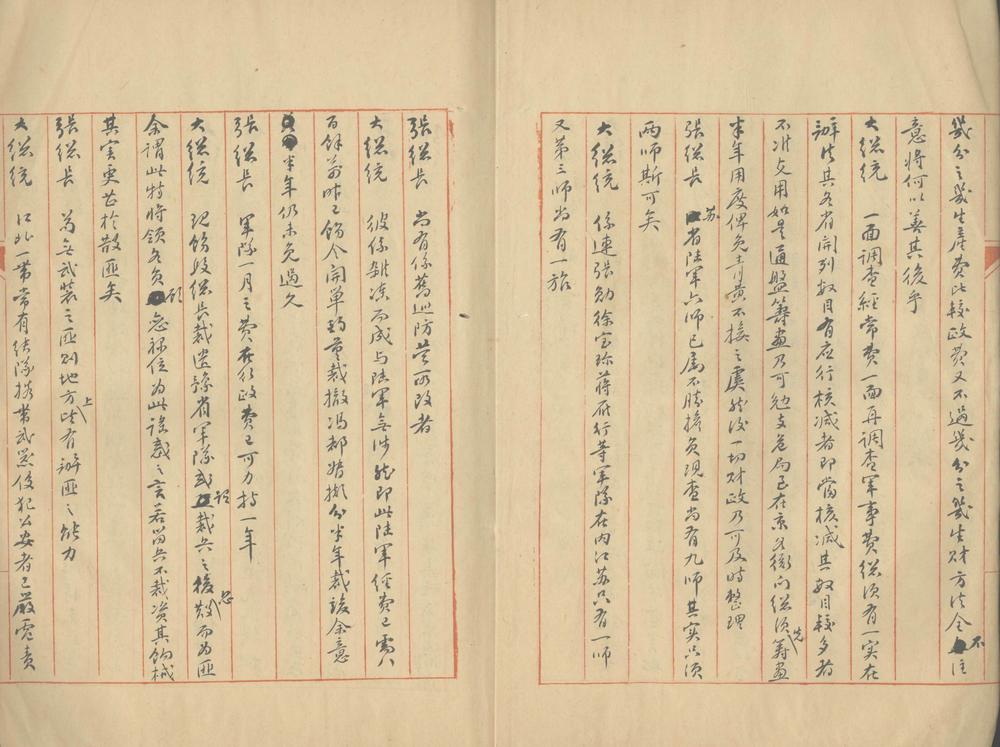 幾分之幾生產費比較政費又不過幾分之幾生財方法全不注
意將何以善其後乎
大總統 一面調查經常費一面再調查軍事費總須有一實在
辦法其各省開列數目有應行核減者即當核減其數目較多者
不准支用如是通盤籌畫乃可勉支危局已在京各衙門總須先籌畫
半年用度俾免青黃不接之虞然後一切財政乃可及時整理
張總長 蘇省陸軍六師已屬不勝擔負現查尚有九師其實只須
兩師斯可矣
大總統 係連張勳徐寶珍蔣雁行等軍隊在內江蘇只有一師
又第三師尚有一旅
張總長 尚有係舊巡防營所改者
大總統 彼係雜湊而成与陸軍無涉然即此陸軍經費已需八
百餘萬昨已飭令開單酌量裁撤馮都督擬分半年裁竣余意
半年仍未免過久
張總長 軍隊一月之費在行政費已可力持一年
大總統 現飭段總長裁遣豫省軍隊或謂裁兵之後恐散而為匪
余謂此特將領各負顧忌祿位為此謠惑之言若留兵不裁資其餉械
其实更甚於散匪矣
張總長 為無武裝之匪則地方上皆有辦匪之能力
大總統 江北一帶常有結隊攜帶武器侵犯公安者已嚴電責